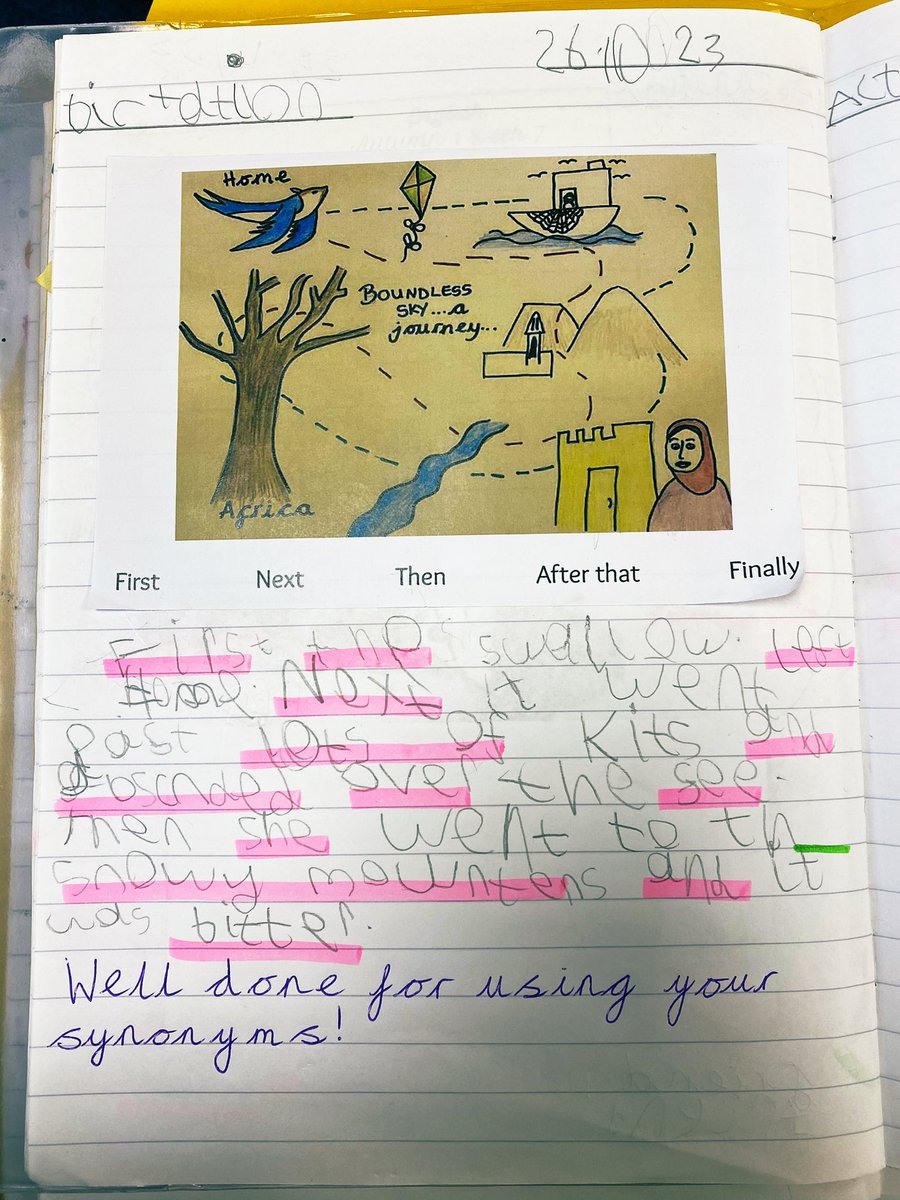 26.10.23
dictation
Act
Home
BOUNDLESS
SKY....a
journey...
Africa
First Next Then After that Finally
First the swallow. left
Home. Next it went
past lots of Kits and
over the see.
Then she went to th
snowy mowntens and it
was bitter.
Well done for using your
synonyms!